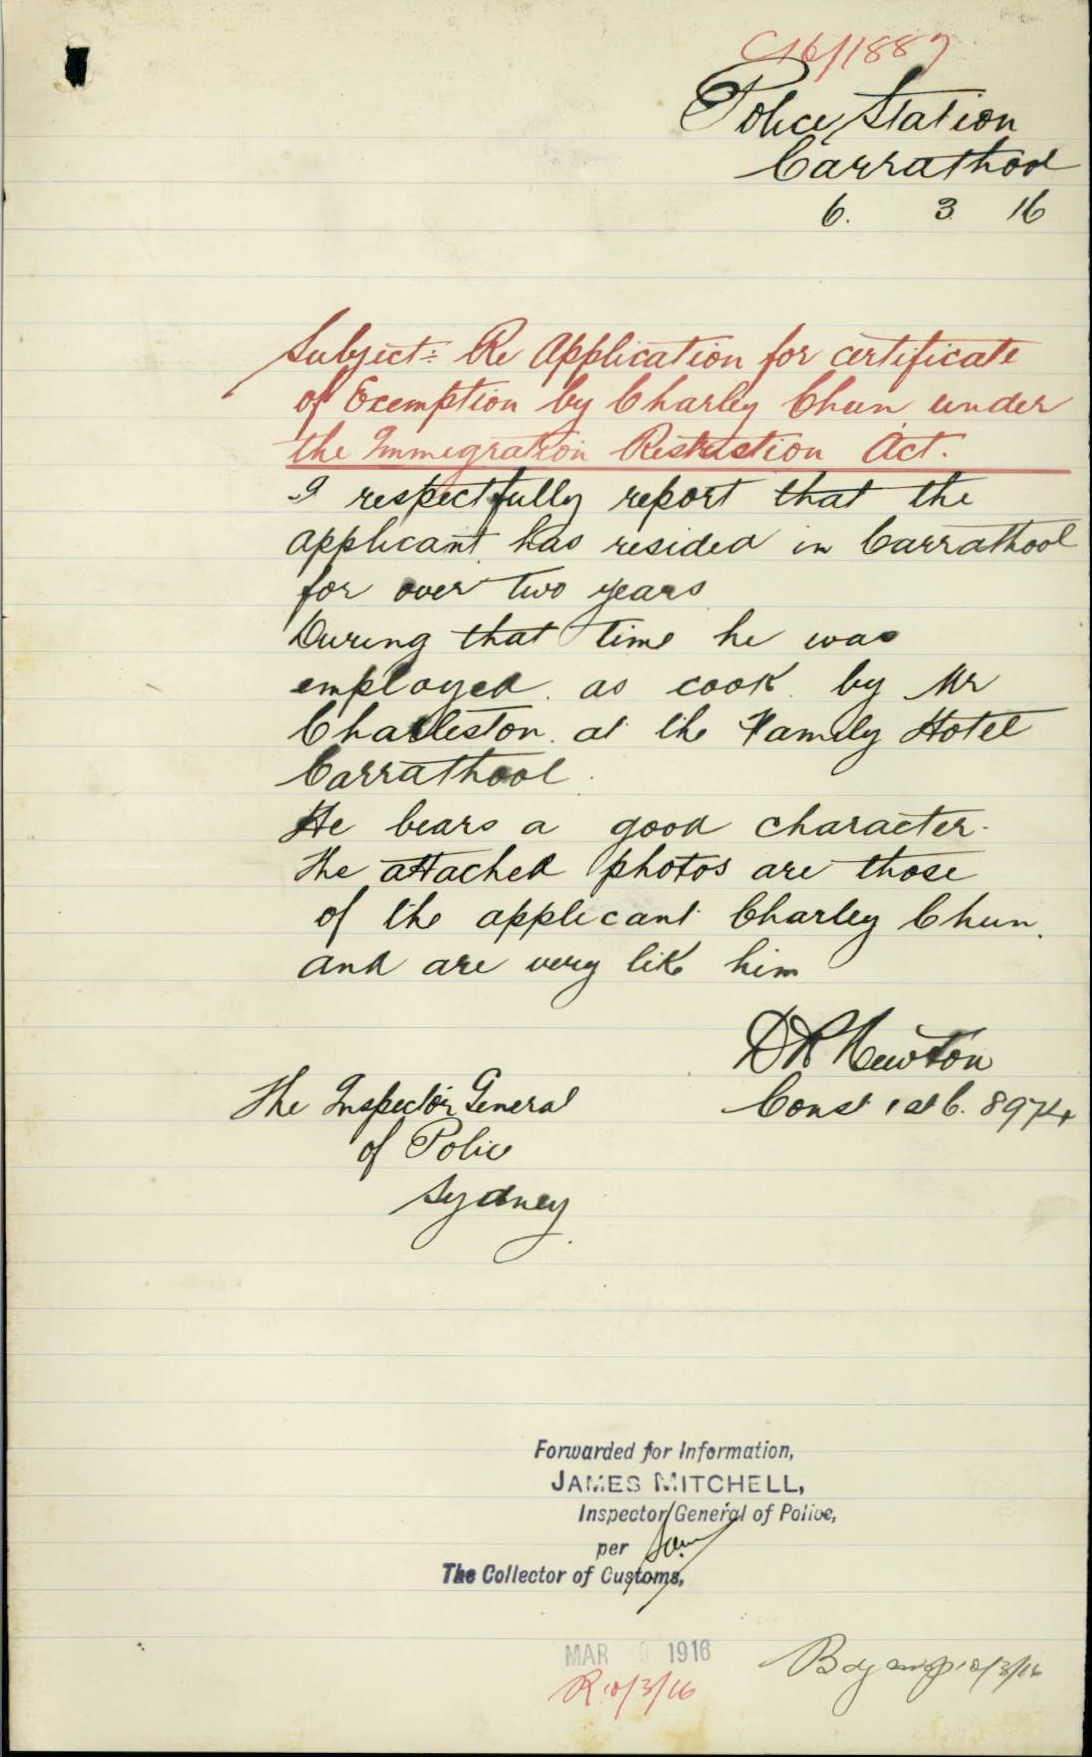 C16/1887
Police Station
Carrathool
6. 3 16
Subject:- Re Application for certificate
of Exemption by Charley Chun under
the Immigration Restriction Act.
I respectfully report that the
applicant has resided in Carrathool
for over two years
During that time he was
employed as cook by Mr
Charleston at the Family Hotel
Carrathool
He bears a good character.
The attached photos are those
of the applicant Charley Chun.
and are very like him
Newton
Const 1st C. 8974
The Inspector General
of Police
Sydney
Forwarded for Information,
JAMES MITCHELL,
Inspector General of Police,
per
The Collector of Customs,
MAR 1916
R 10/3/16
10/3/16